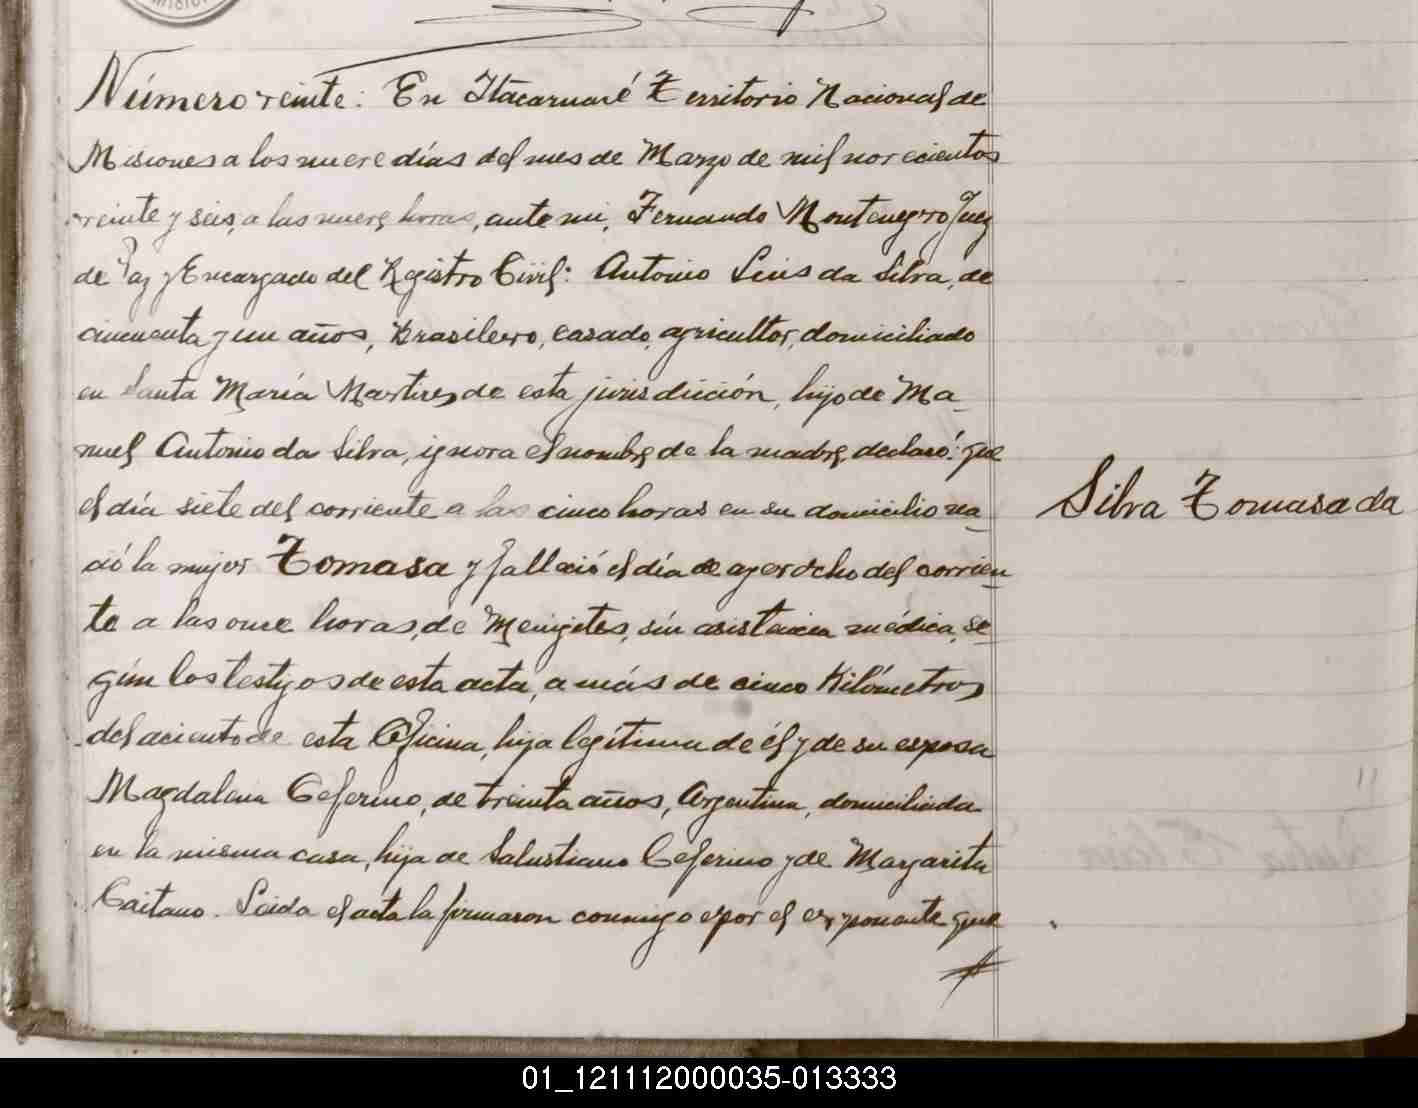 Número veinte: En Itacaruaré Territorio Nacional de
Misiones a los nueve días del mes de Marzo de mil novecientos
veinte y seis, a las nueve horas, ante mi, Fernando Montenegro Juez
de Paz y Encargado del Registro Civil: Antonio Luis da Silva, de
cincuenta y un años, Brasilero, casado, agricultor, domiciliado
en Santa María Martires, de esta jurisdicción, hijo de Ma-
nuel Antonio da Silva, ignora el nombre de la madre, declaró: que
el día siete del corriente a las cinco horas en su domicilio na-
ció la mujer Tomasa y falleció el día de ayer ocho del corrien-
te a las once horas, de Meningites, sin asistencia médica, se-
gún los testigos de esta acta, a más de cinco Kilómetros
del aciento de esta Oficina, hija legítima de él y de su esposa
Magdalena Ceferino, de treinta años, Argentina, domiciliada
en la misma casa, hija de Salustiano Ceferino y de Margarita
Caitano. Leida el acta la firmaron conmigo y por el exponente que
Silva Tomasa da
01_121112000035-013333